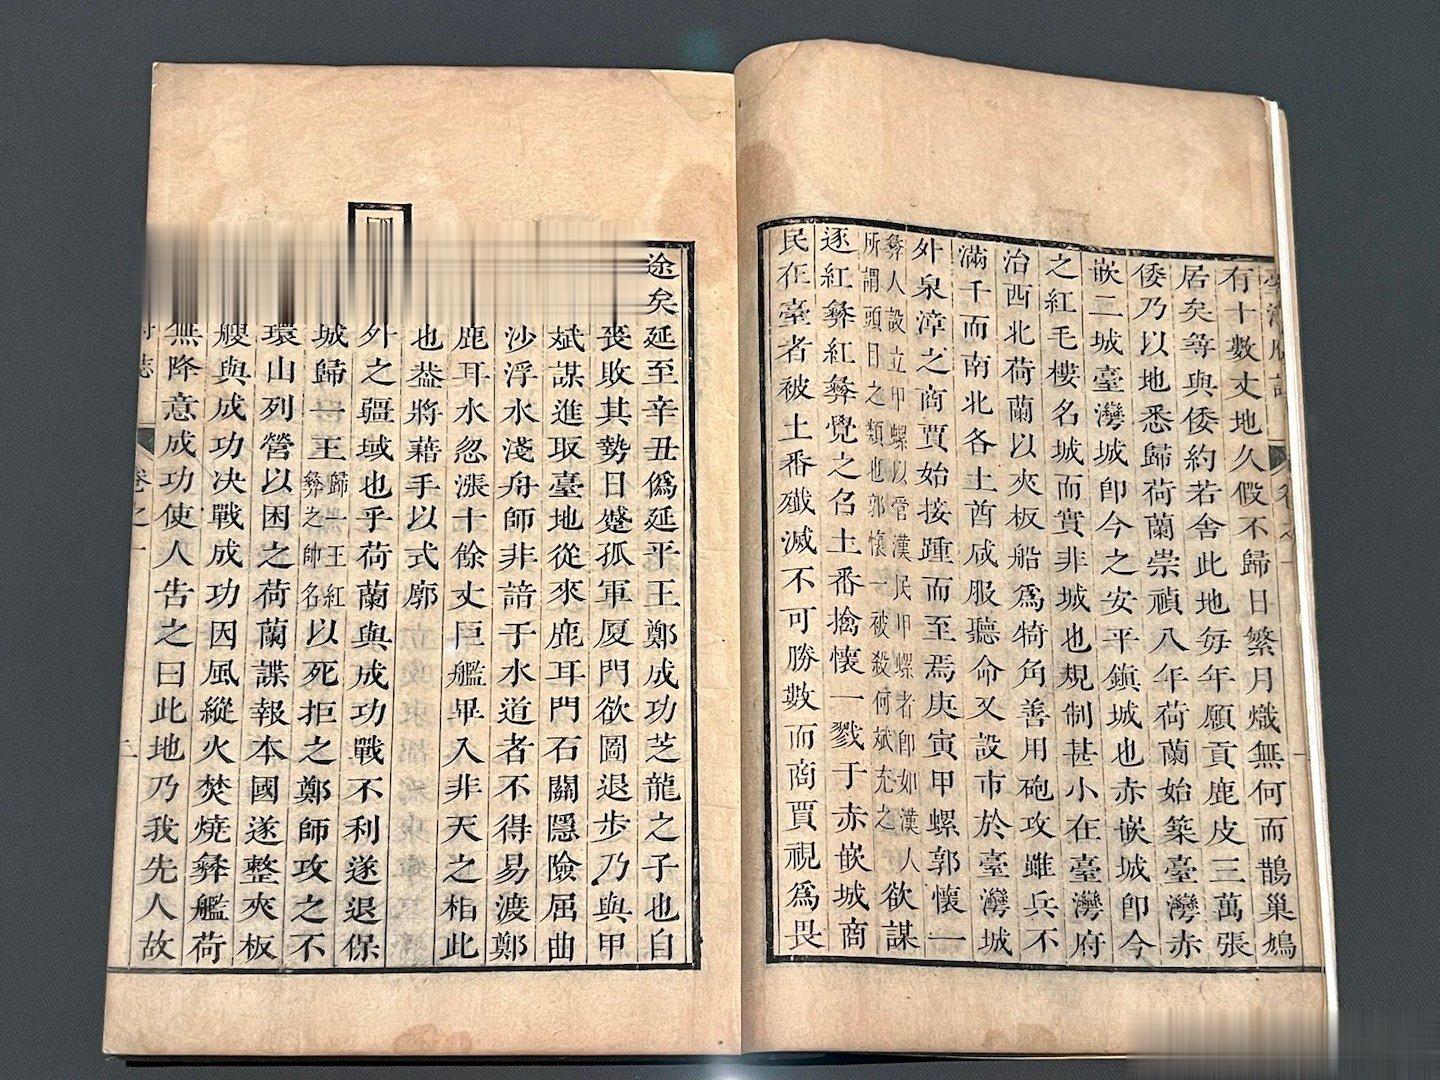 有十數丈地久假不歸日繁月熾無何而鵲巢鳩
居矣等與倭約若舍此地每年願貢鹿皮三萬張
倭乃以地悉歸荷蘭崇禎八年荷蘭始築臺灣赤
嵌二城臺灣城卽今之安平鎮城也赤嵌城卽今
之紅毛樓名城而實非城也規制甚小在臺灣府
治西北荷蘭以夾板船爲犄角善用砲攻雖兵不
滿千而南北各土酋咸服聽命又設市於臺灣城
外泉漳之商賈始接踵而至焉庚寅甲螺郭懷一
彝人設立甲螺以管漢民甲螺者卽如漢人
所謂頭目之類也郭懷一被殺何斌充之
欲謀
逐紅彝紅彝覺之召土番擒懷一戮于赤嵌城商
民在臺者被土番殲滅不可勝數而商賈視爲畏
途矣延至辛丑僞延平王鄭成功芝龍之子也自
喪敗其勢日蹙孤軍厦門欲圖退步乃與甲
斌謀進取臺地從來鹿耳門石關隱險屈曲
沙浮水淺舟師非諳于水道者不得易渡鄭
鹿耳水忽漲十餘丈巨艦畢入非天之相此
也葢將藉手以式廓
外之疆域也乎荷蘭與成功戰不利遂退保
城歸一王
歸一王紅
彝之帥名
以死拒之鄭師攻之不
環山列營以困之荷蘭諜報本國遂整夾板
艘與成功決戰成功因風縱火焚燒彝艦荷
無降意成功使人告之曰此地乃我先人故
府誌
卷之一
二